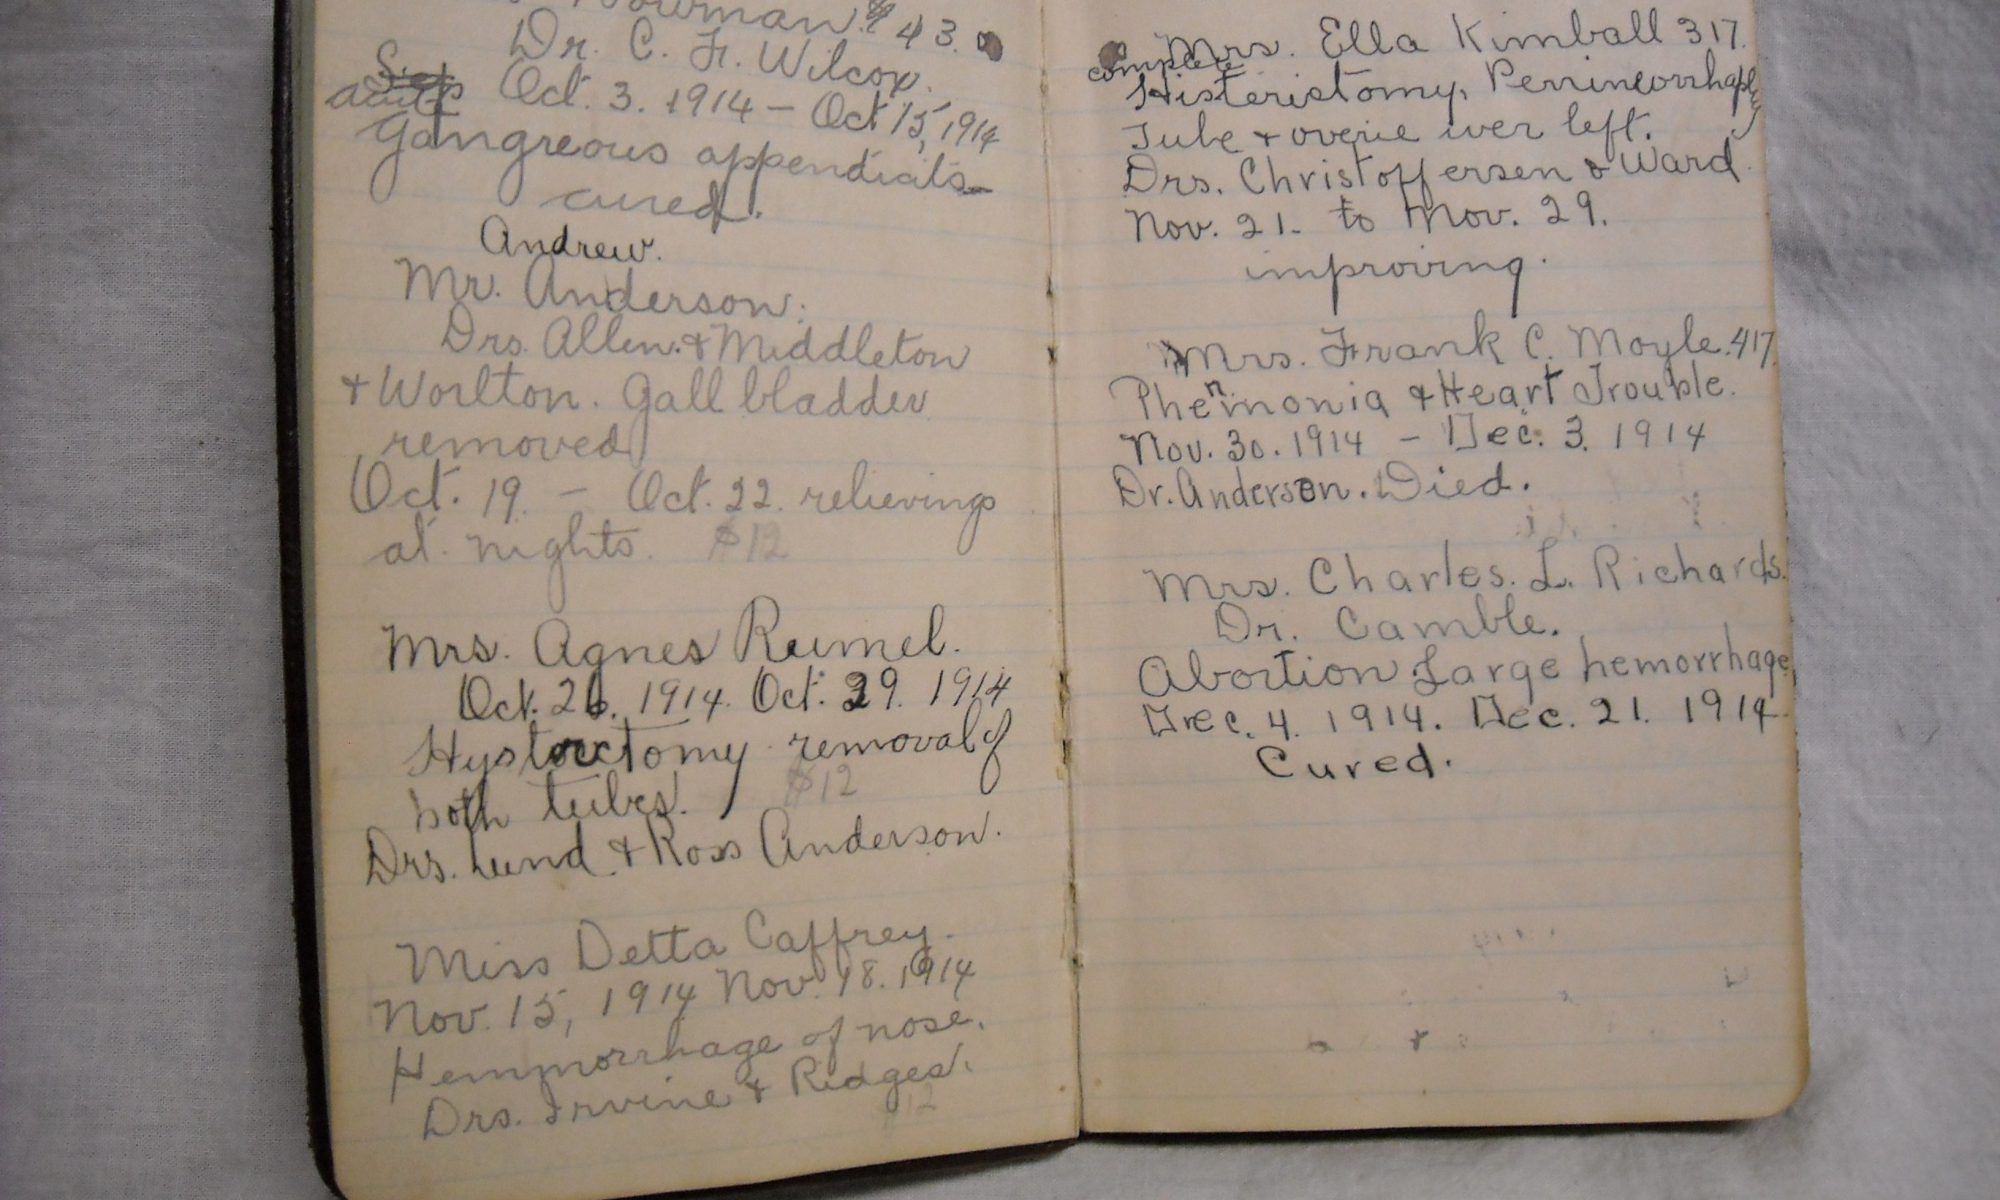 Bowman. $43.
Dr. C. F. Wilcox.
Sep Oct. 3. 1914 — Oct 15, 1914
acute
Gangreous appendicitis
cured.
Andrew.
Mr. Anderson.
Drs. Allen. & Middleton
& Worlton. Gall bladder
removed
Oct. 19. — Oct. 22. relievings
at nights. $12
Mrs. Agnes Rumel.
Oct. 26. 1914. Oct. 29. 1914
Hystorectomy removal of
both tubes. $12
Drs. Lund & Ross Anderson.
Miss Detta Caffrey.
Nov. 15, 1914 Nov. 18. 1914
Hemmorrhage of nose.
Drs. Irvine & Ridges.
12
Mrs. Ella Kimball 317.
complete
Histerictomy, Perrineorrhaphy
Tube & overie wer left.
Drs. Christoffersen & Ward.
Nov. 21. to Nov. 29.
improving.
Mrs. Frank C. Moyle. 417.
Phenmonia & Heart Trouble.
Nov. 30. 1914 — Dec. 3. 1914
Dr. Anderson. Died.
Mrs. Charles. L. Richards.
Dr. Camble.
Abortion Large hemorrhage
Dec. 4. 1914. Dec. 21. 1914
Cured.